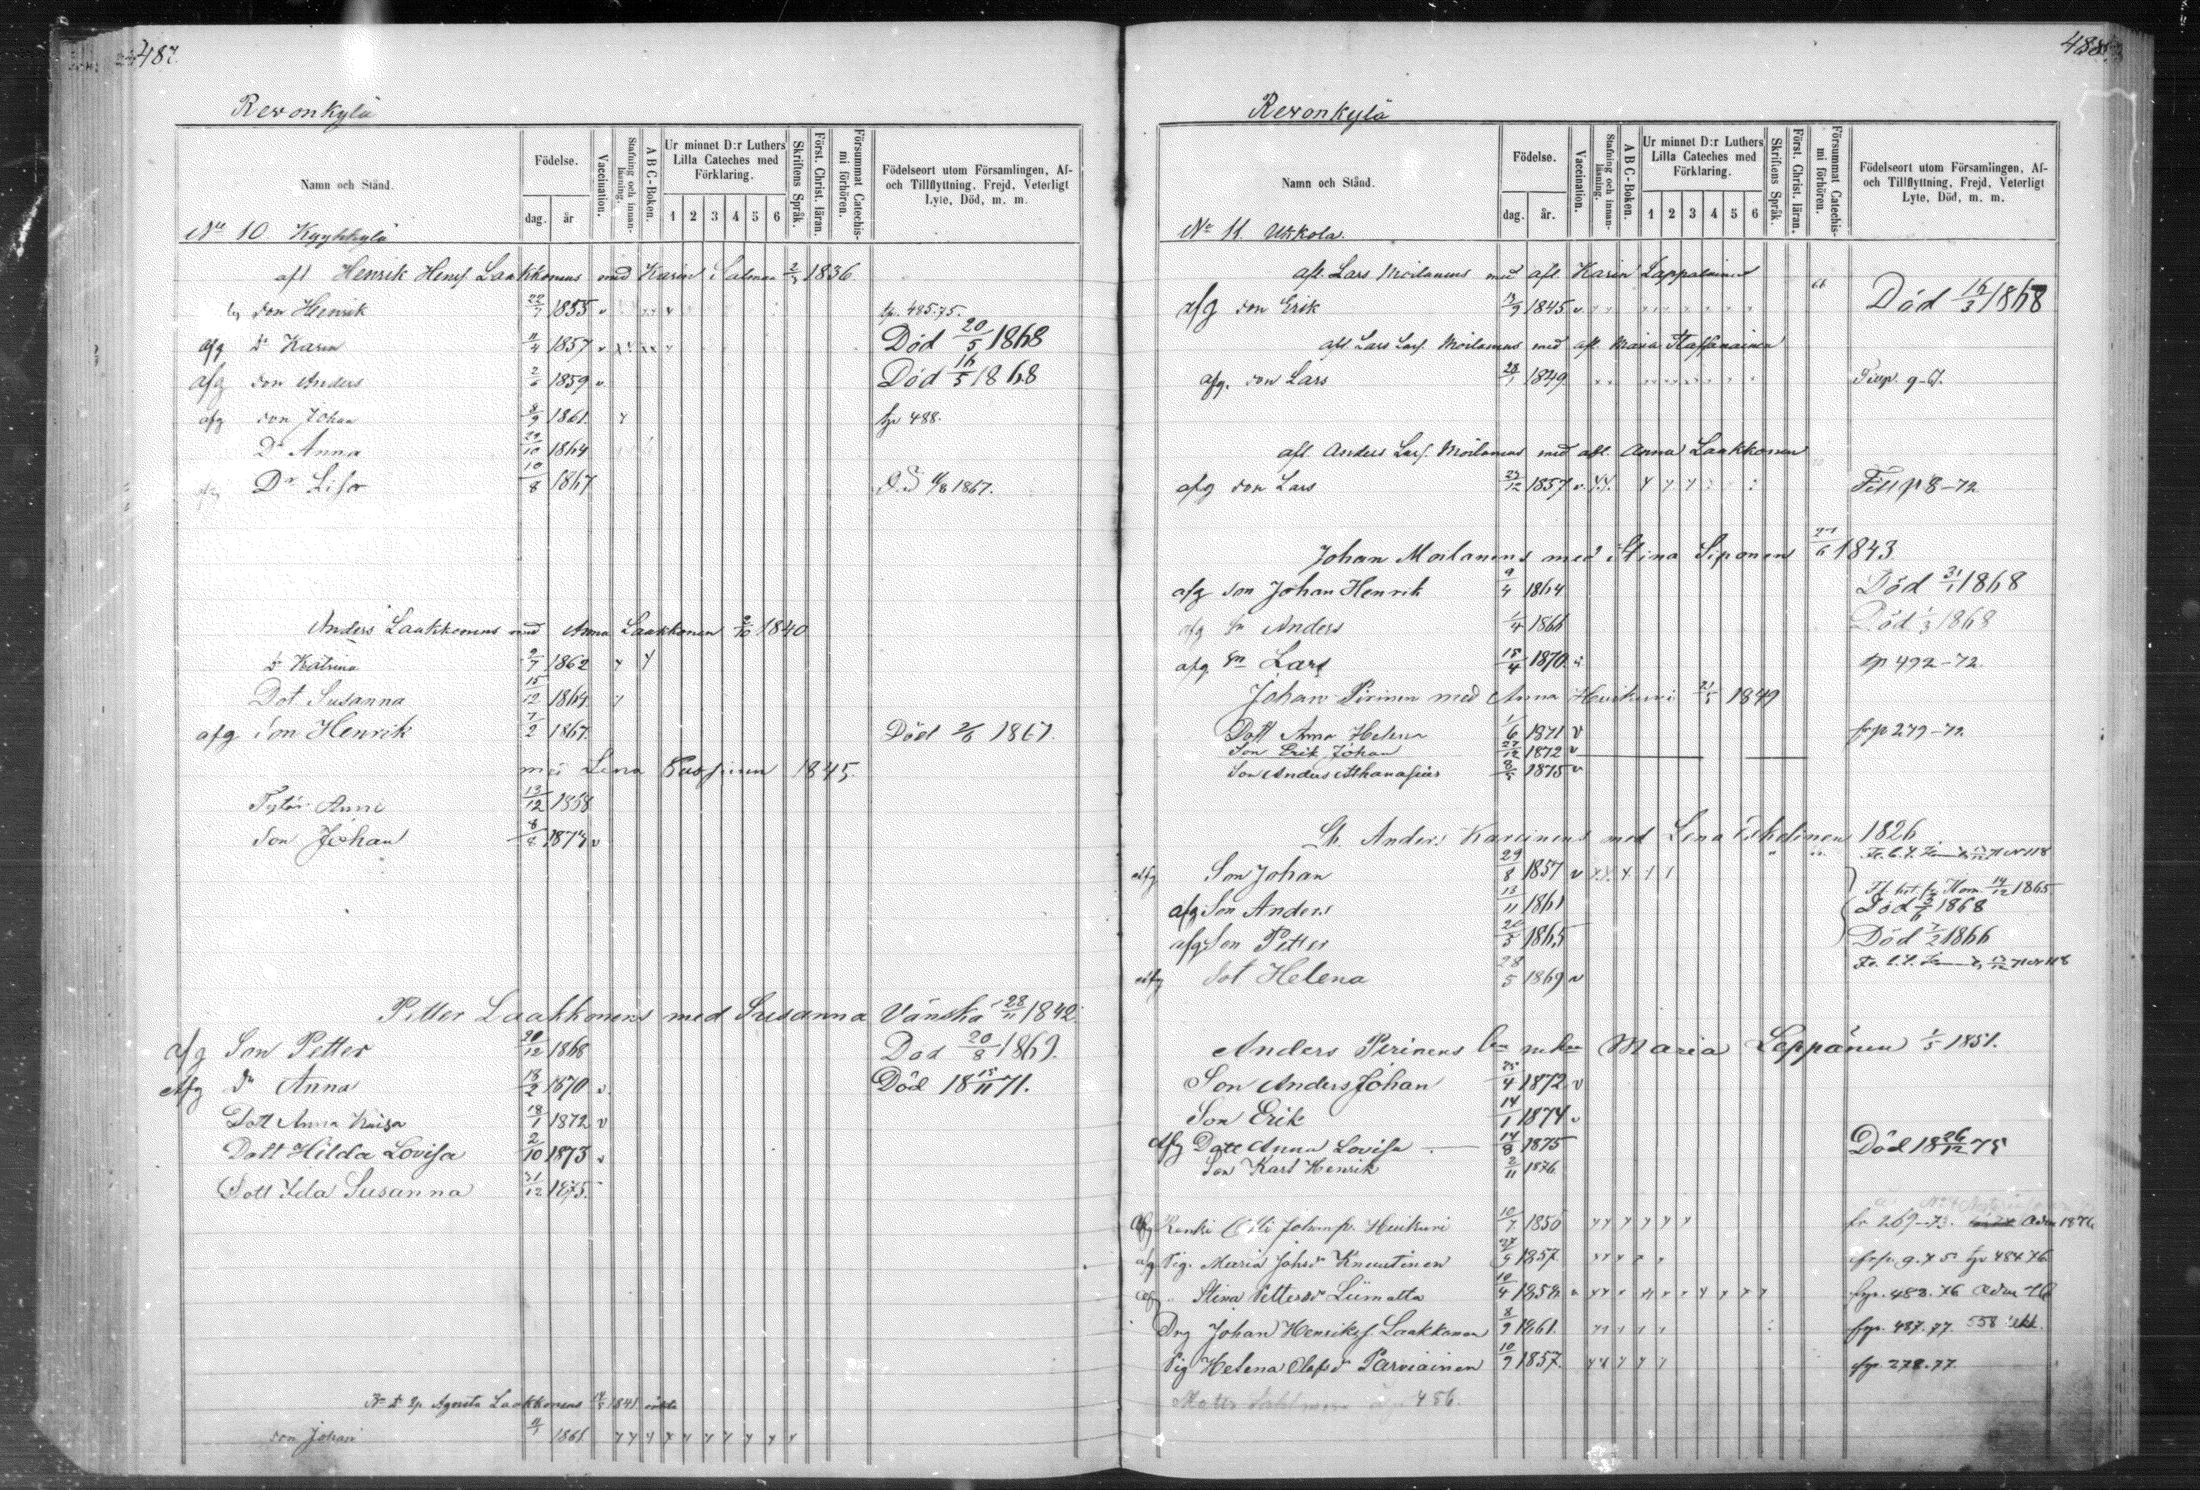 487.
Revonkylä
Namn och Stånd.
Födelse.
dag. år
Vaccination.
Stafning och innan-läsning.
A B C-Boken.
Ur minnet D:r Luthers Lilla Cateches med Förklaring.
1 2 3 4 5 6
Skriftens Språk.
Först. Christ. läran.
Försummat Catechis-mi förhören.
Födelseort utom Församlingen, Af- och Tillflyttning, Frejd, Veterligt Lyte, Död, m. m.
No 10 Kyyhkylä
afl Henrik Henrs Laakkonens med Karin Salmen 2/3 1836
son Henrik 22/7 1855 v tp. 485.75.
afg Dr Karin 11/4 1857 v Död 20/5 1868
afg son Anders 2/6 1859 v Död 16/5 1868
afg son Johan 8/9 1861 fp 488.
Dr Anna 29/10 1864
afg Dr Lisa 10/8 1867 Död 11/8 1867.
Anders Laakkonens med Anna Laakkonen 2/10 1840
Dr Katrina 2/7 1862
Dot. Susanna 15/12 1864
afg son Henrik 7/2 1867. Död 2/6 1867.
med Lena 1845.
Anni 13/12 1868
Son Johan 8/4 1874 v
Petter Laakkonens med Susanna Vänskä 28/11 1842
afg Son Petter 20/12 1868 Död 20/8 1869.
Afg Dr Anna 13/2 1870 v. Död 18 15/11 71.
Dott Anna Kaisa 18/1 1872 v
Dott Hilda Lovisa 2/10 1873 v
Dott Ida Susanna 31/12 1875.
Agneta Laakkonens 1841
son Johan 11/1 1861
488.
Revonkylä
Namn och Stånd.
Födelse.
dag. år.
Vaccination.
Stafning och innan-läsning.
A B C-Boken.
Ur minnet D:r Luthers Lilla Cateches med Förklaring.
1 2 3 4 5 6
Skriftens Språk.
Först. Christ. läran.
Försummat Catechis-mi förhören.
Födelseort utom Församlingen, Af- och Tillflyttning, Frejd, Veterligt Lyte, Död, m. m.
No 11. Ukkola.
afl. Lars Moilanens med afl. Karin Lappalainen
afg son Erik 13/9 1845 v Död 16/3 1868
afl Lars Lars. Moilanens med afl. Maria
afg. son Lars 28/1 1849
afl Anders Lars. Moilanens med afl. Anna Laakkonen
afg son Lars 23/12 1857 v Till p 8-72
Johan Moilanens med Stina Siponen 27/6 1843
afg son Johan Henrik 9/4 1864 Död 31/1 1868
afg Sn Anders 1/4 1866 Död 1/3 1868
afg Sn Lars 18/4 1870 tp 492-72.
Johan Pirinen med Anna Heiskuri 21/5 1849
Dott Anna Helena 1/6 1871 v frp 279-72
Son Erik Johan 27/12 1872 v
Son Anders Athanasius 1875 v
Anders Karvinens med Lena Eskelinen 1826
Afg Son Johan 29/8 1857 v
afg Son Anders 13/11 1861 Död 1868
afg Son Petter 26/5 1865 Död 7/2 1866
afg Dot Helena 28/5 1869 v
Anders Pirinens Maria Leppänen 1/5 1851.
Son Anders Johan 25/4 1872 v
Son Erik 14/1 1874 v
Afg Dott Anna Lovisa 14/8 1875 Död 18 26/12 75
Son Karl Henrik 2/11 1876
Afg Renki Olli Johansp. Heiskuri 10/7 1850 fr 269-73. Adm 1876
afg Pig. Maria Johsdr Knuutinen 27/9 1857. tp 484.76.
afg " Stina Pettersdr Liimatta 10/4 1858 v frp. 482.76
Drg Johan Henriks. Laakkonen 8/9 1861. frp. 487.77. 558
Pig Helena Olofsdr Parviainen 10/9 1857. frp. 278.77
486.